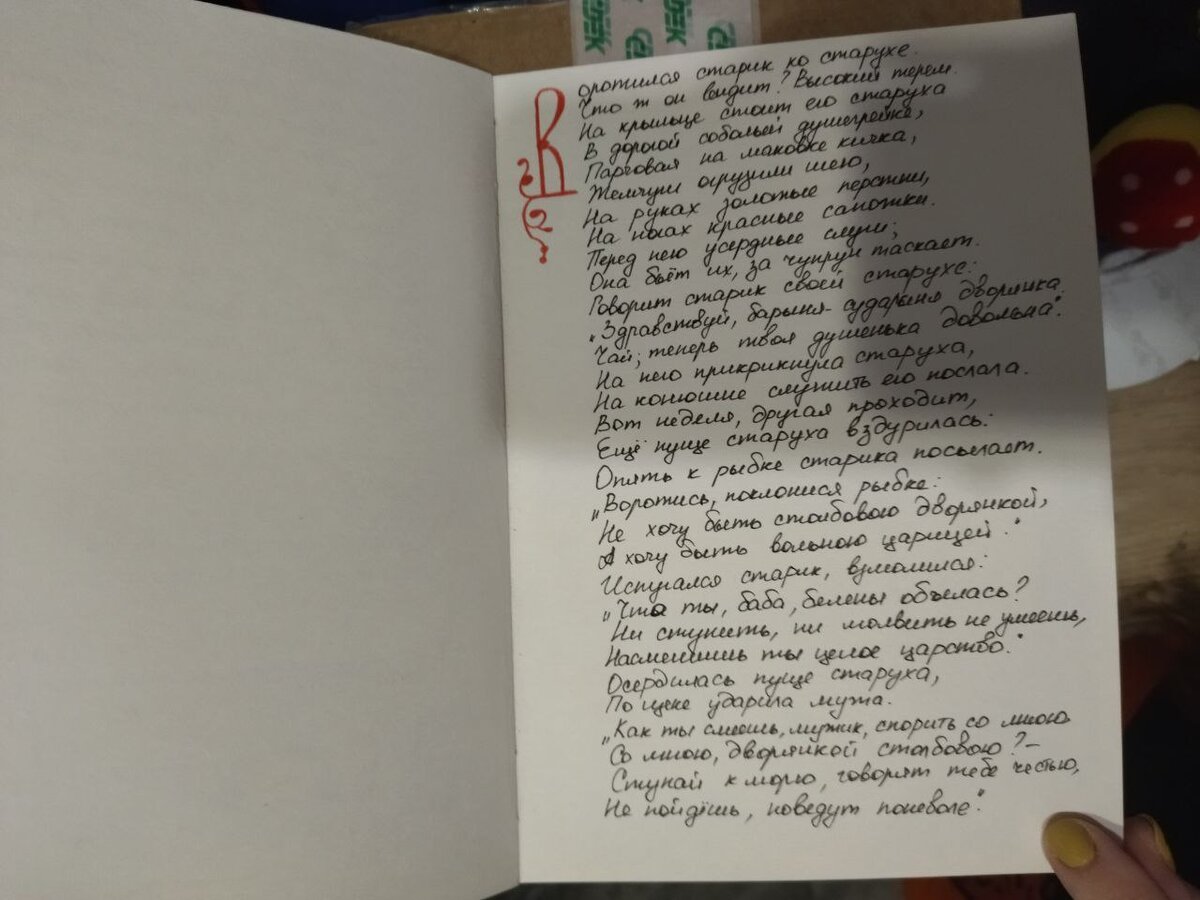 СДЭК
Воротился старик ко старухе.
Что ж он видит? Высокий терем.
На крыльце стоит его старуха
В дорогой собольей душегрейке,
Парчовая на маковке кичка,
Жемчуги огрузили шею,
На руках золотые перстни,
На ногах красные сапожки.
Перед нею усердные слуги;
Она бьёт их, за чупрун таскает.
Говорит старик своей старухе:
„Здравствуй, барыня-сударыня дворянка.
Чай, теперь твоя душенька довольна".
На него прикрикнула старуха,
На конюшне служить его послала.
Вот неделя, другая проходит,
Ещё пуще старуха вздурилась:
Опять к рыбке старика посылает.
„Воротись, поклонися рыбке:
Не хочу быть столбовою дворянкой,
А хочу быть вольною царицей."
Испугался старик, взмолился:
„Что ты, баба, белены объелась?
Ни ступить, ни молвить не умеешь,
Насмешишь ты целое царство."
Осердилась пуще старуха,
По щеке ударила мужа.
„Как ты смеешь, мужик, спорить со мною
Со мною, дворянкой столбовою? –
Ступай к морю, говорят тебе честью,
Не пойдёшь, поведут поневоле".